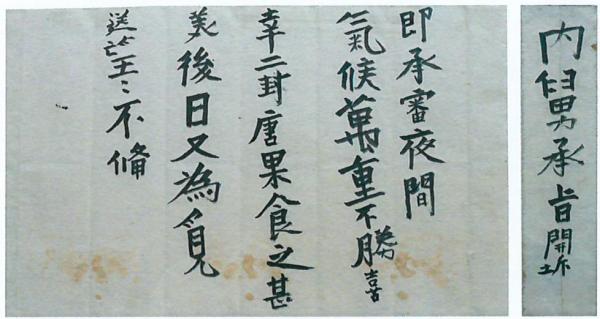 內舅承旨開坼
即承審夜間
氣候萬重不勝喜
幸二封唐果食之甚
美後日又為覓
送 至〻不備